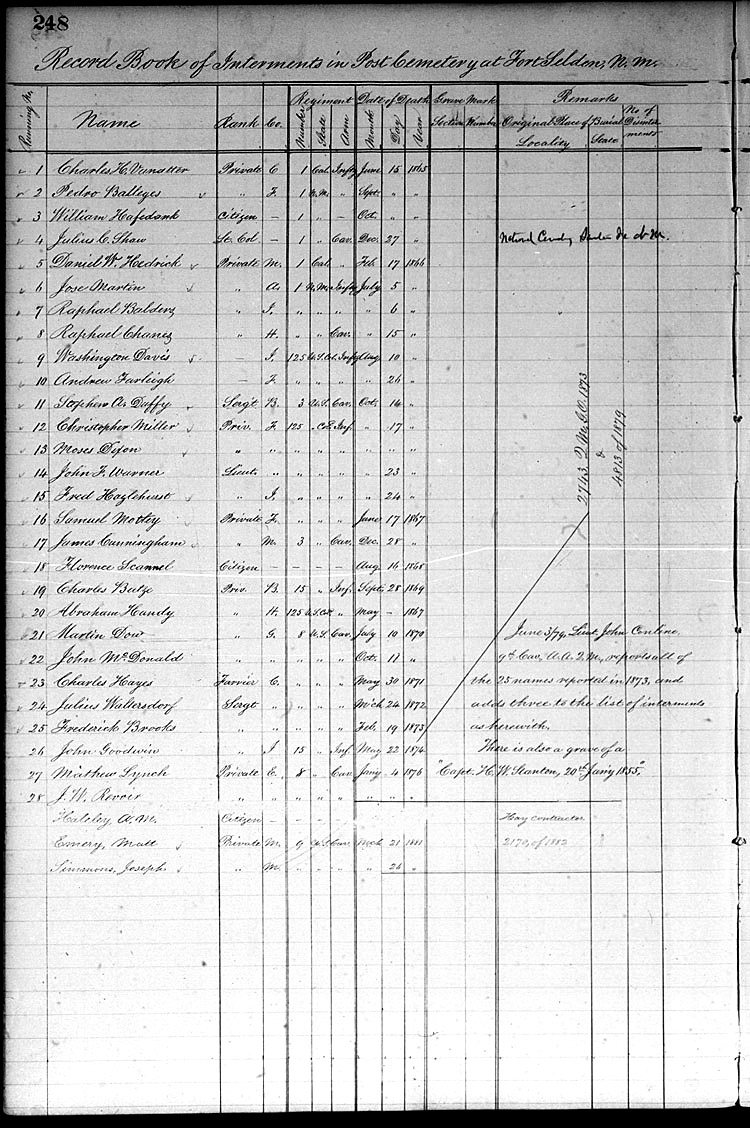 248
Record Book of Interments in Post Cemetery at Fort Selden, N. M.
Running No. Name Rank Co. Regiment Number State Arm Date of Death Month Day Year Grave Mark Section Number Remarks Original Place of Burial Locality State No of Disinterments
1 Charles H. Vanatter Private C 1 Cal. Infty June 15 1865
2 Pedro Balleges " F. 1 N.M. " Sept. " "
3 William Hafedank Citizen — 1 " — Oct. " "
4 Julius C. Shaw Lt. Col — 1 " Cav. Dec. 27 "
5 Daniel W. Hedrick Private M. 1 Cal. " Feb. 17 1866
6 Jose Martin " A. 1 N.M. Infty July 5 "
7 Raphael Balderz " I. " " " " 6 "
8 Raphael Chanis " H. " " Cav. " 15 "
9 Washington Davis — I. 125 U.S.Col. Infty Aug 10 "
10 Andrew Farleigh — F. " " " " 26 "
11 Stephen A. Duffy Sergt B. 3 U.S. Cav. Oct. 14 "
12 Christopher Miller Priv. F. 125 " Col. Inf. " 17 "
13 Moses Dixon " " " " " " " "
14 John F. Warner Lieut. " " " " " 23 "
15 Fred Hazlehurst " I. " " " " 24 "
16 Samuel Motley Private F. " " " June 17 1867
17 James Cunningham " M. 3 " Cav. Dec. 28 "
18 Florence Scannel Citizen — — — — Aug. 16 1868
19 Charles Butze Priv. B. 15 " Inf. Sept. 28 1869
20 Abraham Handy " H. 125 U.S.Col " May — 1867
21 Martin Dow " G. 8 U.S. Cav. July 10 1870
22 John McDonald " " " " " Oct. 11 "
23 Charles Hayes Farrier C. " " " May 30 1871
24 Julius Waltersdorf Sergt " " " " Mch 24 1872
25 Frederick Brooks " " " " " Feb. 19 1873
26 John Goodwin " I 15 " Inf May 22 1874
27 Mathew Lynch Private E. 8 " Cav Jany 4 1876
28 J. W. Revoir " " " " " " " "
Halsley A. M. Citizen — — — Hay contractor
Emery, Matt Private M. 9 U.S. Cav. Mch 21 1881 2179, of 1882
Simmons, Joseph " M. " 24 "
2743. Q.M.G.O. 1873
&
4813 of 1879
June 3/79, Lieut. John Conline,
9th Cav, A.A.Q.M., reports all of
the 25 names reported in 1873, and
adds three to the list of interments
as herewith.
There is also a grave of a
"Capt. H. W. Stanton, 20th Jan'y 1855".